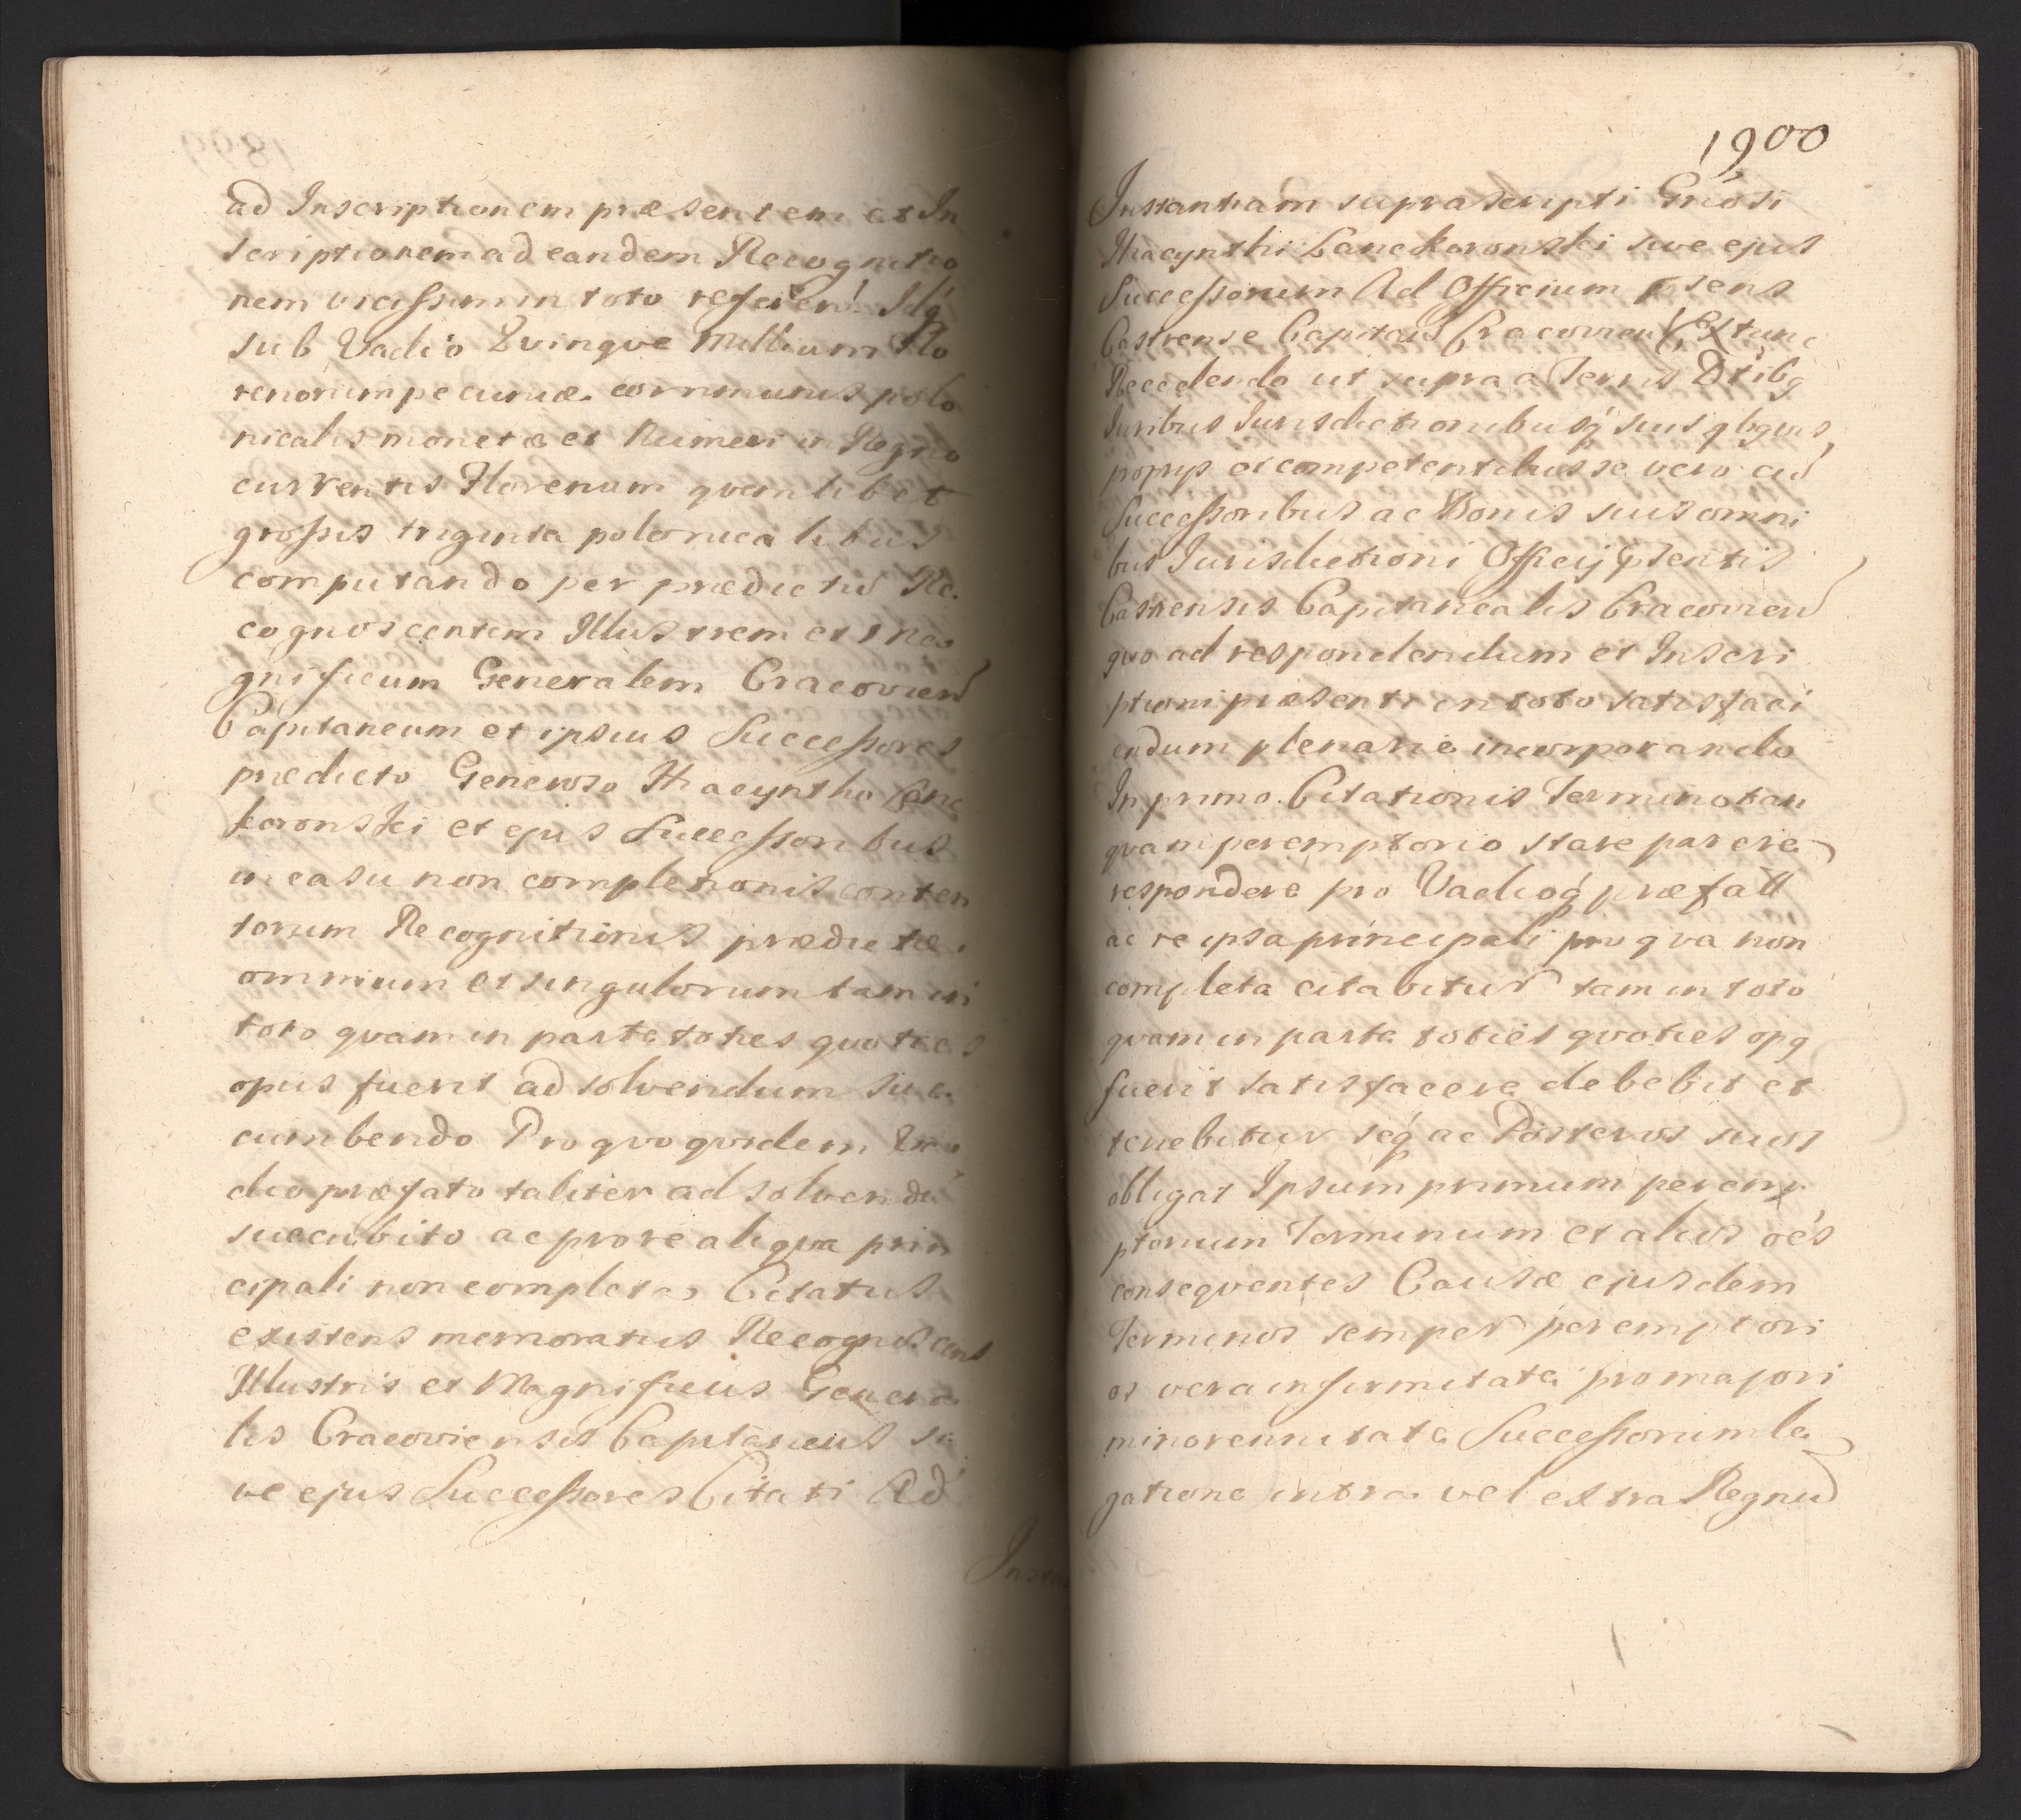 ad Inscriptionem præsentem et In
scriptionem ad eandem Recognitio
nem vicissim in toto referen. Idq
sub Vadio Qvinqve Millium Flo
renorum pecuniæ communis polo
nicalis monetæ et Numeri in Regno
currentis Florenum qvemlibet
grossis triginta polonicalibus
computando per prædictũ Re
cognoscentem Illustrem et Ma
gnificum Generalem Cracovien
Capitaneum et ipsius Successores
prædicto Generoso Hiacyntho Lanc
koronski et ejus Successoribus
in casu non completionis conten
torum Recognitionis prædictæ
omnium et singulorum tam in
toto qvam in parte toties quoties
opus fuerit ad solvendum suc
cumbendo Pro qvo qvidem Va
dio præfato taliter ad solvendũ
succubito ac pro re aliqva prin
cipali non completa, Citatus
existens memoratus Recognoscens
Illustris et Magnificus Genera
lis Cracoviensis Capitaneus si
ve ejus Successores Citati Ad
Instan
1900
Instantiam suprascripti Gnosi
Hiacynthi Lanckoronski sive ejus
Successorum Ad Officium psens
Castrense Capitan Cracovien Extunc
Recedendo ut supra a Terris Dtibq
Juribus Jurisdictionibusq suis qbqvis
propys et competentibus se vero cũ
Successoribus ac Bonis suis omni
bus Jurisdictioni Officij psentis
Castrensis Capitanealis Cracovien
qvo ad respondendum et Inscri
ptioni præsenti in toto satisfaci
endum plenarie incorporando
In primo Citationis Termino tan
qvam peremptorio stare parere
respondere pro Vadioq præfatt
ac re ipsa principali pro qva non
completa citabitur tam in toto
qvam in parte toties qvoties opq
fuerit satisfacere debebit et
tenebitur seq ac Posteros suos
obligat Ipsum primum perem
ptorium Terminum et alios oẽs
conseqventes Causæ ejusdem
Terminos semper peremptori
os vera infirmitate pro majori
minorennitate Successorum le
gatione intra vel extra Regnũ